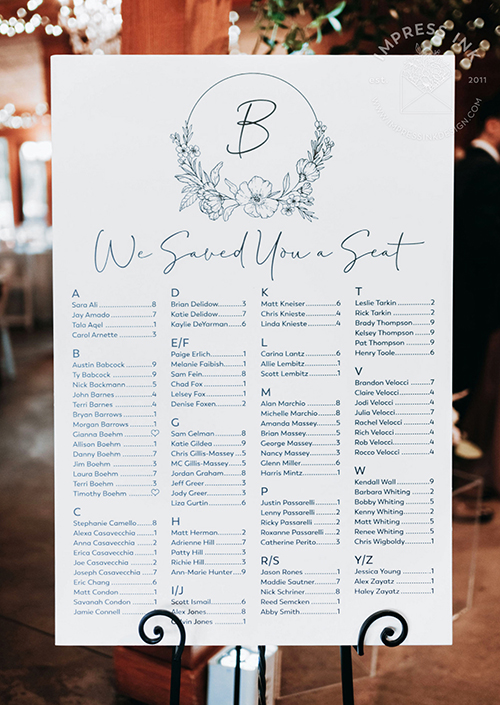 IMPRESS INK
EST.
2011
B
We Saved You a Seat
A
Sara Ali ..................8
Jay Amado ..............7
Tala Aqel ................1
Carol Arnette ..........3
B
Austin Babcock .......9
Ty Babcock .............9
Nick Backmann .......5
John Barnes ............4
Terri Barnes ............4
Bryan Barrows ........1
Morgan Barrows .....1
Gianna Boehm ........♡
Allison Boehm .........7
Danny Boehm .........7
Jim Boehm .............3
Laura Boehm ..........7
Terri Boehm ............3
Timothy Boehm ......♡
C
Stephanie Camello ......8
Alexa Casavecchia ......1
Anna Casavecchia ......2
Erica Casavecchia ......1
Joe Casavecchia ........2
Joseph Casavecchia ....7
Eric Chang ..............6
Matt Condon ............1
Savanah Condon .......1
Jamie Connell ..........8
D
Brian Delidow..........3
Katie Delidow ..........7
Kaylie DeYarman......6
E/F
Paige Erlich.............1
Melanie Faibish .......1
Sam Fein................8
Chad Fox ...............1
Lelsey Fox ..............1
Denise Foxen ..........2
G
Sam Gelman ...........8
Katie Gildea ............9
Chris Gillis-Massey ...5
MC Gillis-Massey......5
Jordan Graham ........8
Jeff Greer ...............3
Jody Greer..............3
Liza Gurtin .............6
H
Matt Herman...........2
Adrienne Hill ..........7
Patty Hill ...............3
Richie Hill..............3
Ann-Marie Hunter.....9
I/J
Scott Ismail.............6
Alex Jones..............8
Calvin Jones ...........1
K
Matt Kneiser ...........6
Chris Knieste ..........4
Linda Knieste ..........4
L
Carina Lantz ...........6
Allie Lembitz ...........1
Scott Lembitz ..........1
M
Alan Marchio ..........8
Michelle Marchio .....8
Amanda Massey.......5
Brian Massey...........5
George Massey.........3
Nancy Massey .........3
Glenn Miller ............6
Harris Mintz............1
P
Justin Passarelli .......1
Lenny Passarelli .......2
Ricky Passarelli ........2
Roxanne Passarelli ....2
Catherine Perito........3
R/S
Jason Rones ............1
Maddie Sautner........7
Nick Schriner ..........8
Reed Semcken .........1
Abby Smith.............1
T
Leslie Tarkin ............2
Rick Tarkin ..............2
Brady Thompson.......9
Kelsey Thompson......9
Pat Thompson ..........9
Henry Toole..............6
V
Brandon Velocci .......7
Claire Velocci ...........4
Jodi Velocci .............4
Julia Velocci .............7
Rachel Velocci ..........4
Rich Velocci .............4
Rob Velocci ..............4
Rocco Velocci ...........4
W
Kendall Wall .............9
Barbara Whiting .......2
Bobby Whiting ..........5
Kenny Whiting...........2
Matt Whiting ............5
Renee Whiting ..........5
Chris Wigboldy .........1
Y/Z
Jessica Young ...........1
Alex Zayatz .............1
Haley Zayatz............1